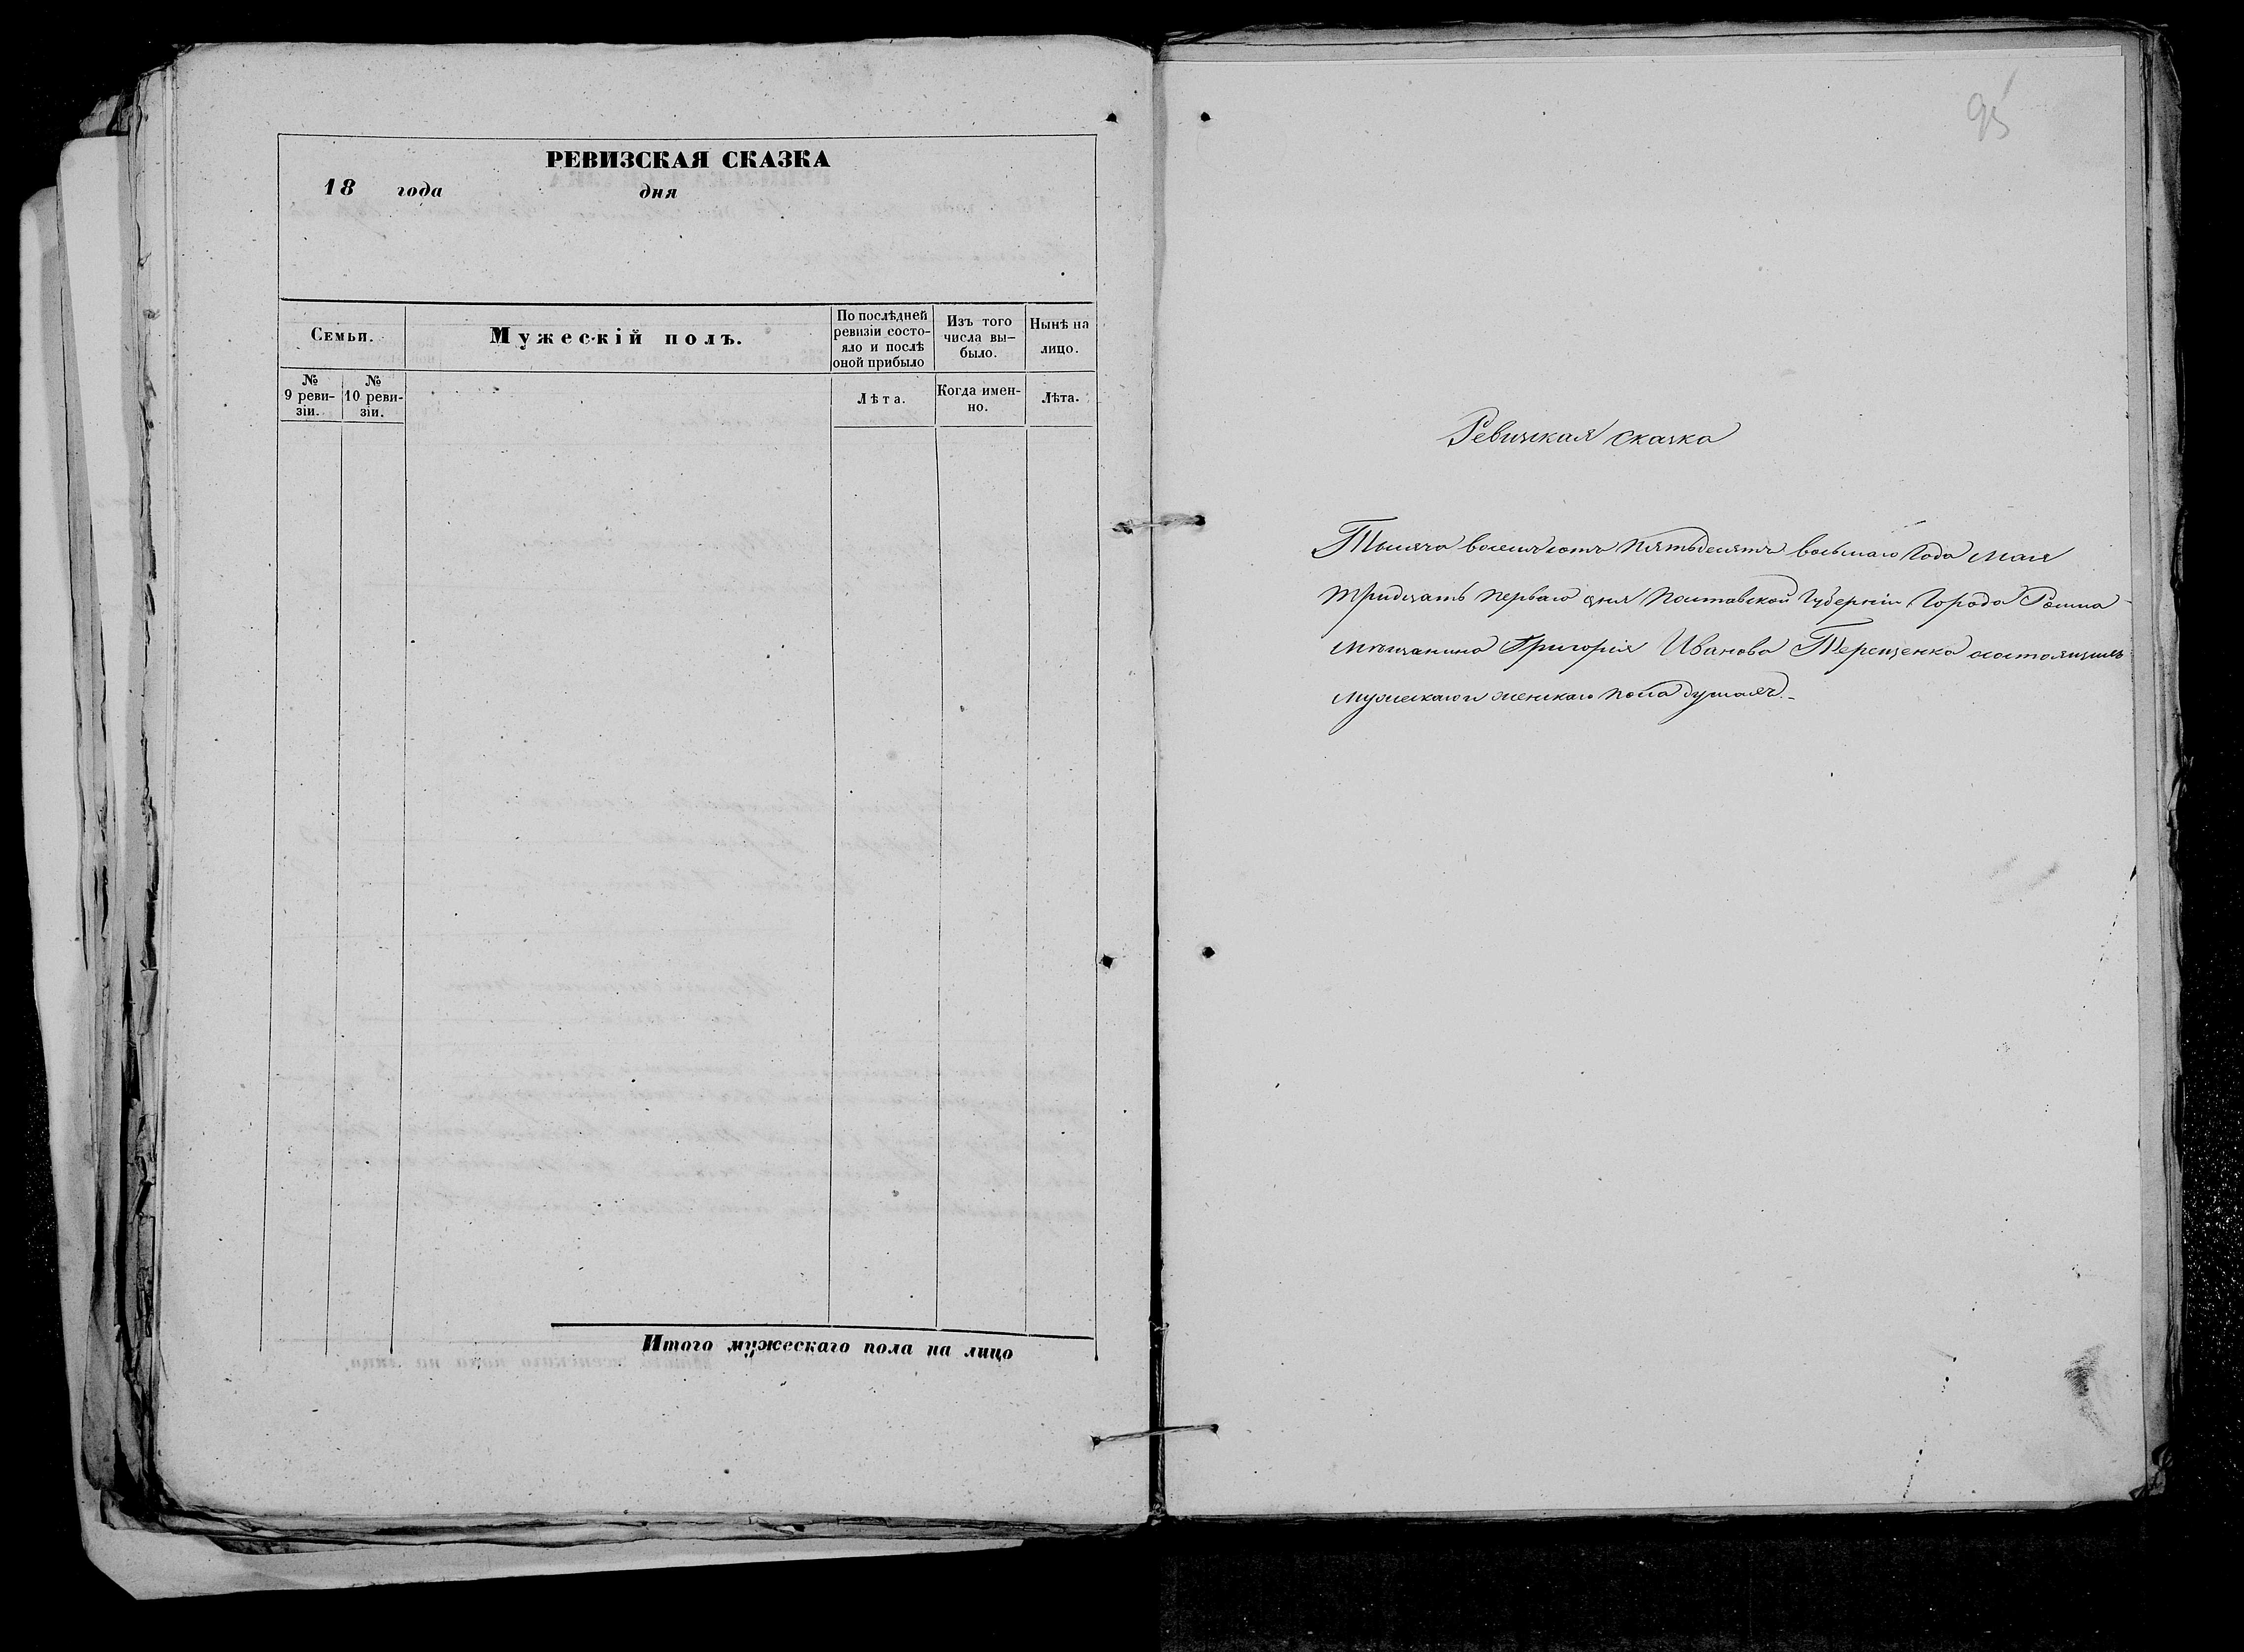 РЕВИЗСКАЯ СКАЗКА
18 года дня
Семьи.
Мужескій полъ.
По послѣдней
ревизіи состо-
яло и послѣ
оной прибыло
Изъ того
числа вы-
было.
Нынѣ на
лицо.
№
9 реви-
зіи.
№
10 реви-
зіи.
Лѣта.
Когда имен-
но.
Лѣта.
Итого мужескаго пола на лицо
95
Ревизская сказка
Тысяча восемьсотъ пятьдесятъ восьмаго года мая
тридцать перваго дня Полтавской Губерніи Города Ромна
мѣщанина Григорія Иванова Терещенка состоящимъ
мужескаго и женскаго пола душамъ.-